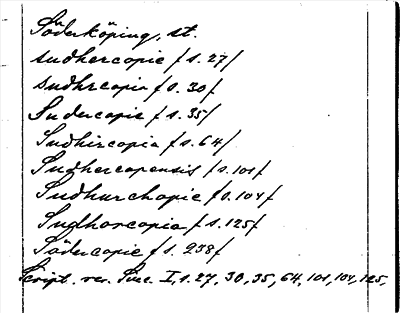 Söderköping, st.
sudhercopie /s. 27/
sudhrcopia /s. 30/
Sudercopie /s. 35/
Sudhircopia /s. 64/
Sudhercopensis /s. 101/
Sudhurchopie /s. 104/
Sudhorcopia /s. 125/
Södercopie /s. 238/
Script. rer. Suec. I, s. 27, 30, 35, 64, 101, 104, 125,